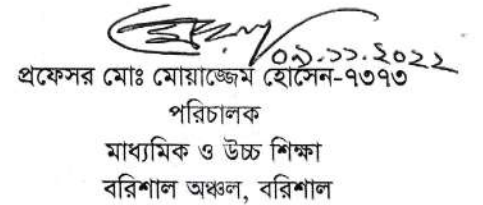 ০৯.১১.২০২২
প্রফেসর মোঃ মোয়াজ্জেম হোসেন-৭৩৭৩
পরিচালক
মাধ্যমিক ও উচ্চ শিক্ষা
বরিশাল অঞ্চল, বরিশাল